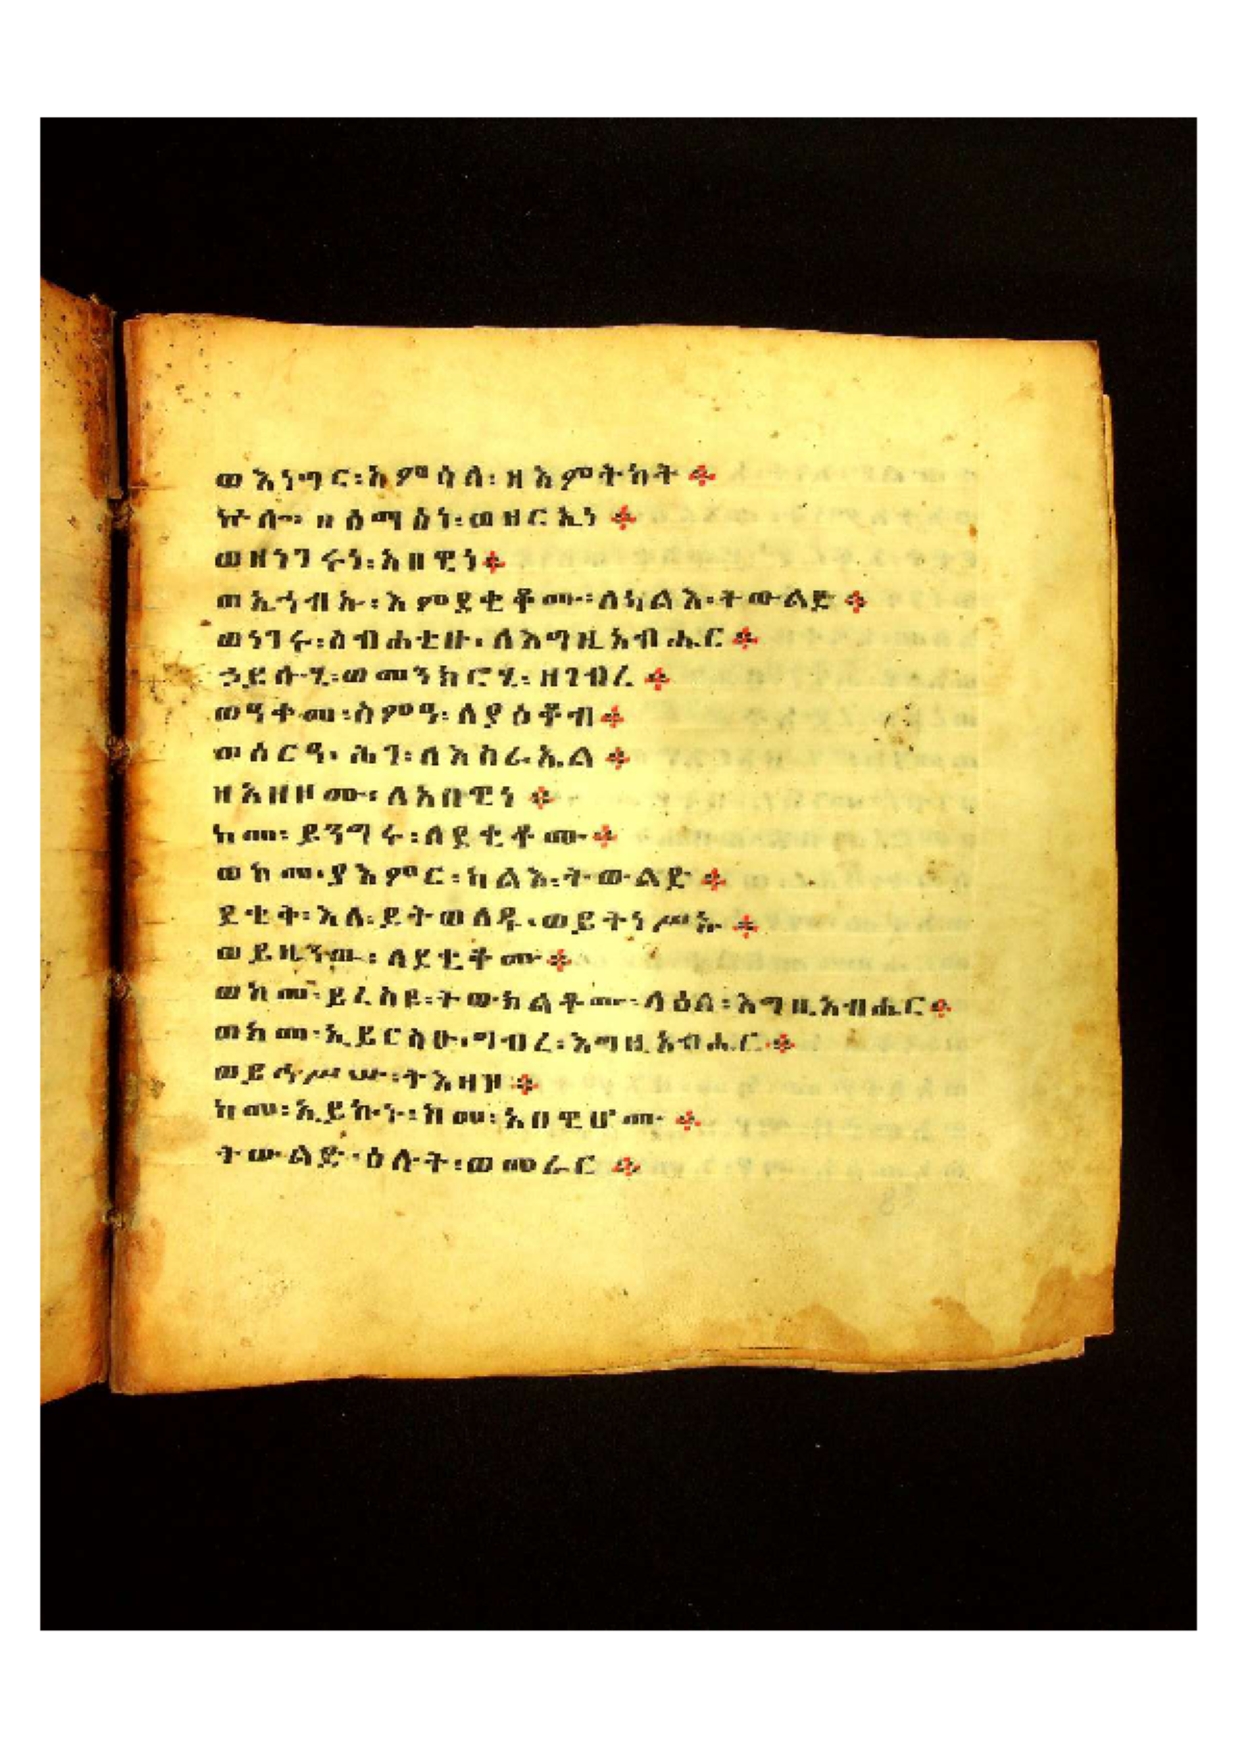 ወእነግር፡አምሳለ፡ዘእምትካት፨
ኵሎ፡ዘሰማዕነ፡ወዘርኢነ፨
ወዘነገሩነ፡አበዊነ፨
ወኢኀብኡ፡እምደቂቆሙ፡ለካልእ፡ትውልድ፨
ወነገሩ፡ስብሐቲሁ፡ለእግዚአብሔር፨
ኃይሉሂ፡ወመንክሮሂ፡ዘገብረ፨
ወዓቀመ፡ስምዓ፡ለያዕቆብ፨
ወሰርዓ፡ሕገ፡ለእስራኤል፨
ዘአዘዞሙ፡ለአበዊነ፨
ከመ፡ይንግሩ፡ለደቂቆሙ፨
ወከመ፡ያእምር፡ካልእ፡ትውልድ፨
ደቂቅ፡እለ፡ይትወለዱ፡ወይትነሥኡ፨
ወይዜንው፡ለደቂቆሙ፨
ወከመ፡ይረስዩ፡ትውክልቶሙ፡ላዕለ፡እግዚአብሔር፨
ወከመ፡ኢይርስዑ፡ግብረ፡እግዚአብሔር፨
ወይኅሥሡ፡ትእዛዞ፨
ከመ፡ኢይኩኑ፡ከመ፡አበዊሆሙ፨
ትውልድ፡ዕሉት፡ወመራር፨